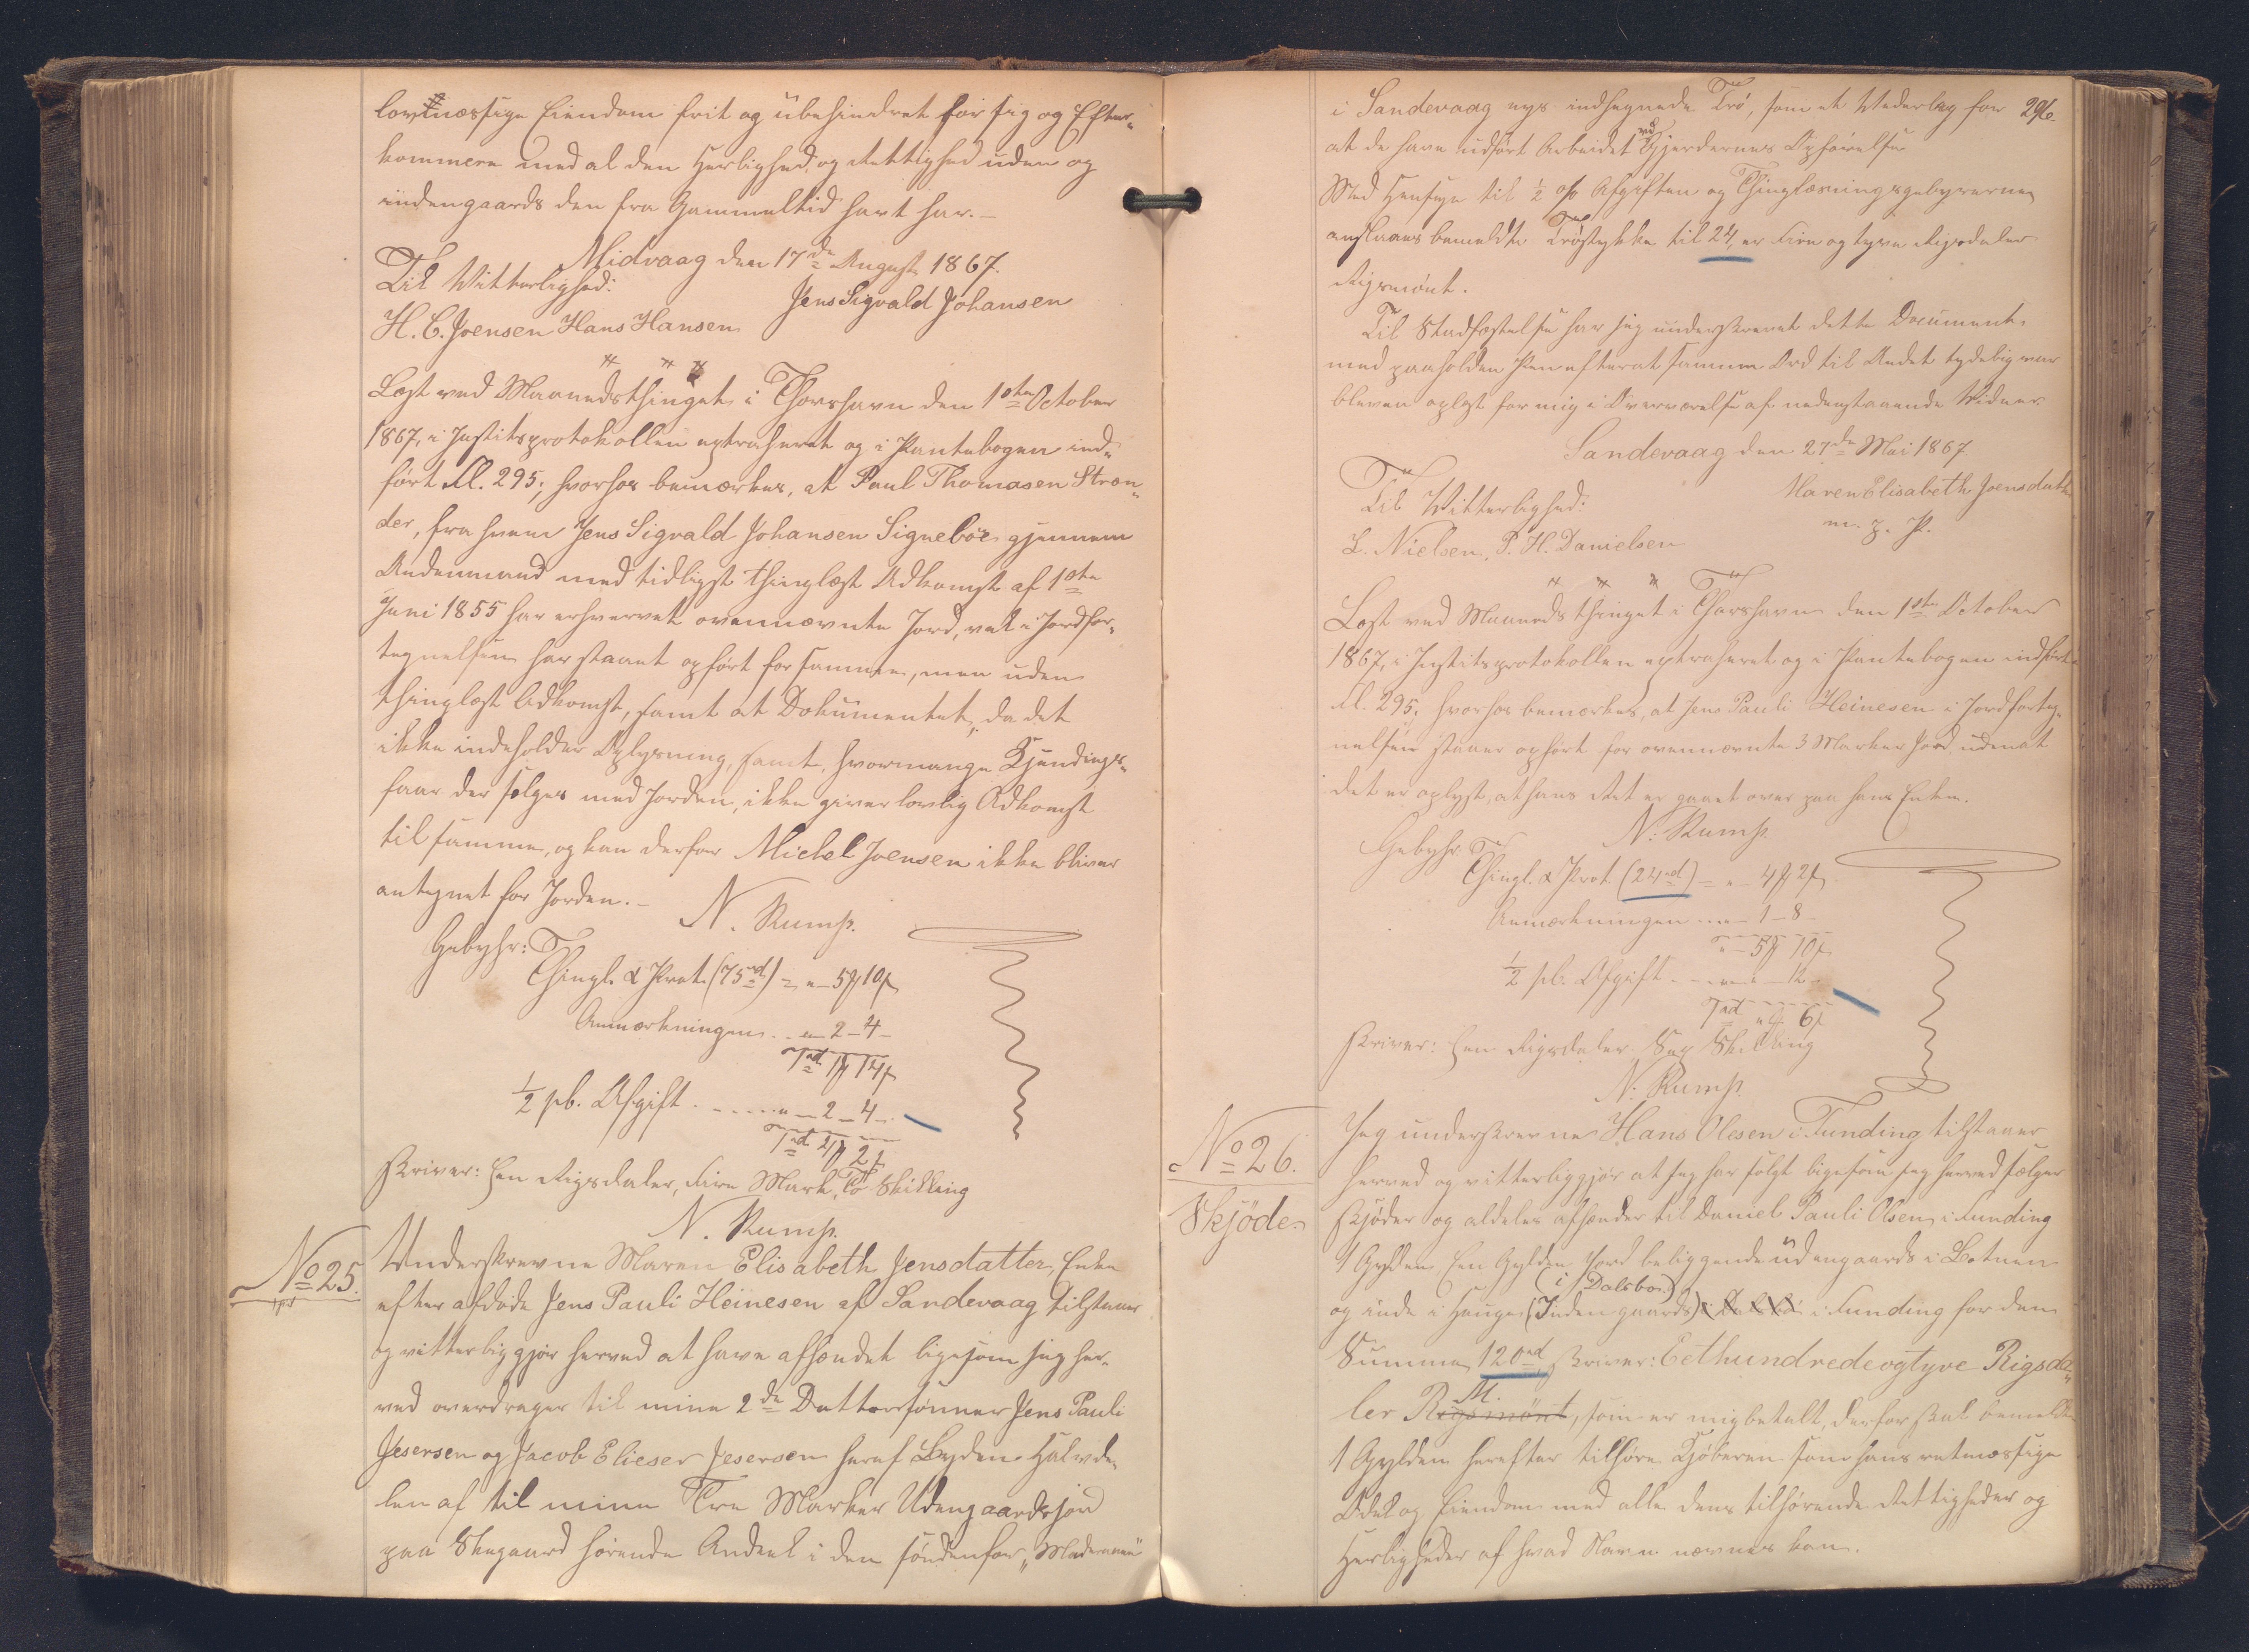 lovmæssige Eiendom frit og ubehindret for sig og Efter-
kommere med al den Herlighed og Rettighed uden og
indengaards den fra Gammeltid havt har. –
Midvaag den 17de August 1867.
Til Vitterlighed:
Jens Sigvald Johansen
H. C. Joensen Hans Hansen
Læst ved Maanedsthinget i Thorshavn den 1ste October
1867, i Justitsprotokollen extraheret og i Pantebogen ind-
ført Fl. 295; hvorhos bemærkes, at Paul Thomasen Stron-
der, fra hvem Jens Sigvald Johansen Signebøe gjennem
Andenmand med tidligst thinglæst Adkomst af 1ste
Juni 1855 har erhvervet ovennævnte Jord, vel i Jordfor-
tegnelsen har staaet opført for samme, men uden
thinglæst Adkomst, samt at Dokumentet, da det
ikke indeholder Oplysning, samt, hvormange Kjendings-
faar der følger med Jorden, ikke giver lovlig Adkomst
til samme, og kan derfor Michel Joensen ikke bliver
antegnet for Jorden. –
N. Rump.
Gebyhr:
Thingl. & Prot. (75rd) = " – 5 10
Anmærkningen . . " – 2 – 4 –
1rd 1 14
½ pb. Afgift . – – – " – 2 – 4 –
1rd 4 2
skriver: Een Rigsdaler, Fire Mark, To Skilling
N. Rump.
No 25.
Underskrevne Maren Elisabeth Jensdatter, Enke
efter afdøde Jens Pauli Heinesen af Sandevaag tilstaaer
og vitterliggjør herved at have afhændet ligesom jeg her-
ved overdrager til mine 2de Dattersønner Jens Pauli
Jesersen og Jacob Elieser Jesersen heraf Bygden Halvde-
len af til mine Tre Marker Udengaardsjord
paa Skegaard hørende Andeel i den søndenfor
296.
i Sandevaag nys indhegnede Trø, som et Vederlag for
at de have udført Arbeidet ved Gjerdernes Opførelse
Med Hensyn til ½ o/o Afgiften og Thinglæsningsgebyrerne
anslaaes bemeldte Trøstykke til 24, er Fire og tyve Rigsdaler
Rigsmønt.
Til Stadfæstelse har jeg underskrevet dette Document
med paaholden Pen efterat samme Ord til Andet tydelig var
bleven oplæst for mig i Overværelse af nedenstaaende Vidner
Sandevaag den 27de Mai 1867
Maren Elisabeth Joensdatt
Til Vitterlighed:
m. p. P.
L. Nielsen. P. H. Danielsen
Læst ved Maanedsthinget i Thorshavn den 1ste October
1867, i Justitsprotokollen extraheret og i Pantebogen indført
Fl. 295; hvorhos bemærkes, at Jens Pauli Heinesen i Jordforteg-
nelsen staaer opført for ovennævnte 3 Marker Jord, uden at
det er oplyst, at hans Ret er gaaet over paa hans Enke.
N. Rump
Gebyhr
Thingl. & Prot. (24rd) – " – 4 2
Anmærkningen . . " – 1 – 8 –
" – 5 10
½ pb. Afgift . – – " – " – 12 –
1rd " 6
skriver: Een Rigsdaler Sex Skilling
N. Rump.
No 26.
Skjöde
Jeg underskrevne Hans Olesen i Funding tilstaaer
herved og vitterliggjør at Jeg har solgt ligesom jeg herved sælger
skjøder og aldeles afhænder til Daniel Pauli Olsen i Funding
1 Gylden Een Gylden Jord beliggende udengaards i Botnen
(i Dalsbö.)
og inde i Hauge (Inden gaards) i Funding for den
Summa 120rd, skriver: Eethundredeogtyve Rigsda-
M.
ler Rigsmönt, som er mig betalt, derfor skal bemeldte
1 Gylden herefter tilhøre Kjøberen som hans retmæssige
Odel og Eiendom med alle dens tilhørende Rettigheder og
Herligheder af hvad Navn nævnes kan.